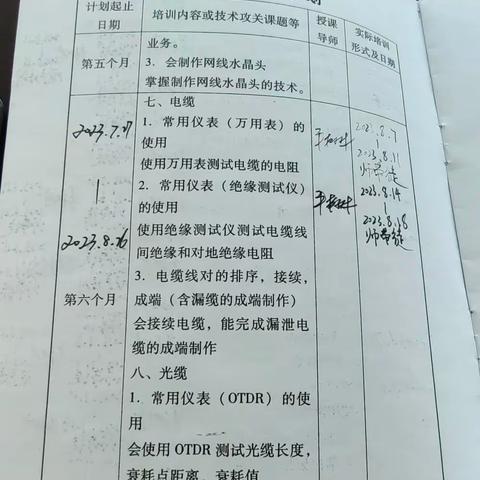 计划起止
日期
培训内容或技术攻关课题等
授课
导师
实际培训
形式及日期
业务。
第五个月
3. 会制作网线水晶头
掌握制作网线水晶头的技术。
七、电缆
2023.7.17
|
2023.8.16
第六个月
1. 常用仪表（万用表）的
使用
使用万用表测试电缆的电阻
2. 常用仪表（绝缘测试仪）
的使用
使用绝缘测试仪测试电缆线
间绝缘和对地绝缘电阻
3. 电缆线对的排序，接续，
成端（含漏缆的成端制作）
会接续电缆，能完成漏泄电
缆的成端制作
八、光缆
1. 常用仪表（OTDR）的使
用
会使用 OTDR 测试光缆长度，
衰耗点距离、衰耗值
2023.8.7
|
2023.8.11
师带徒
2023.8.14
|
2023.8.18
师带徒